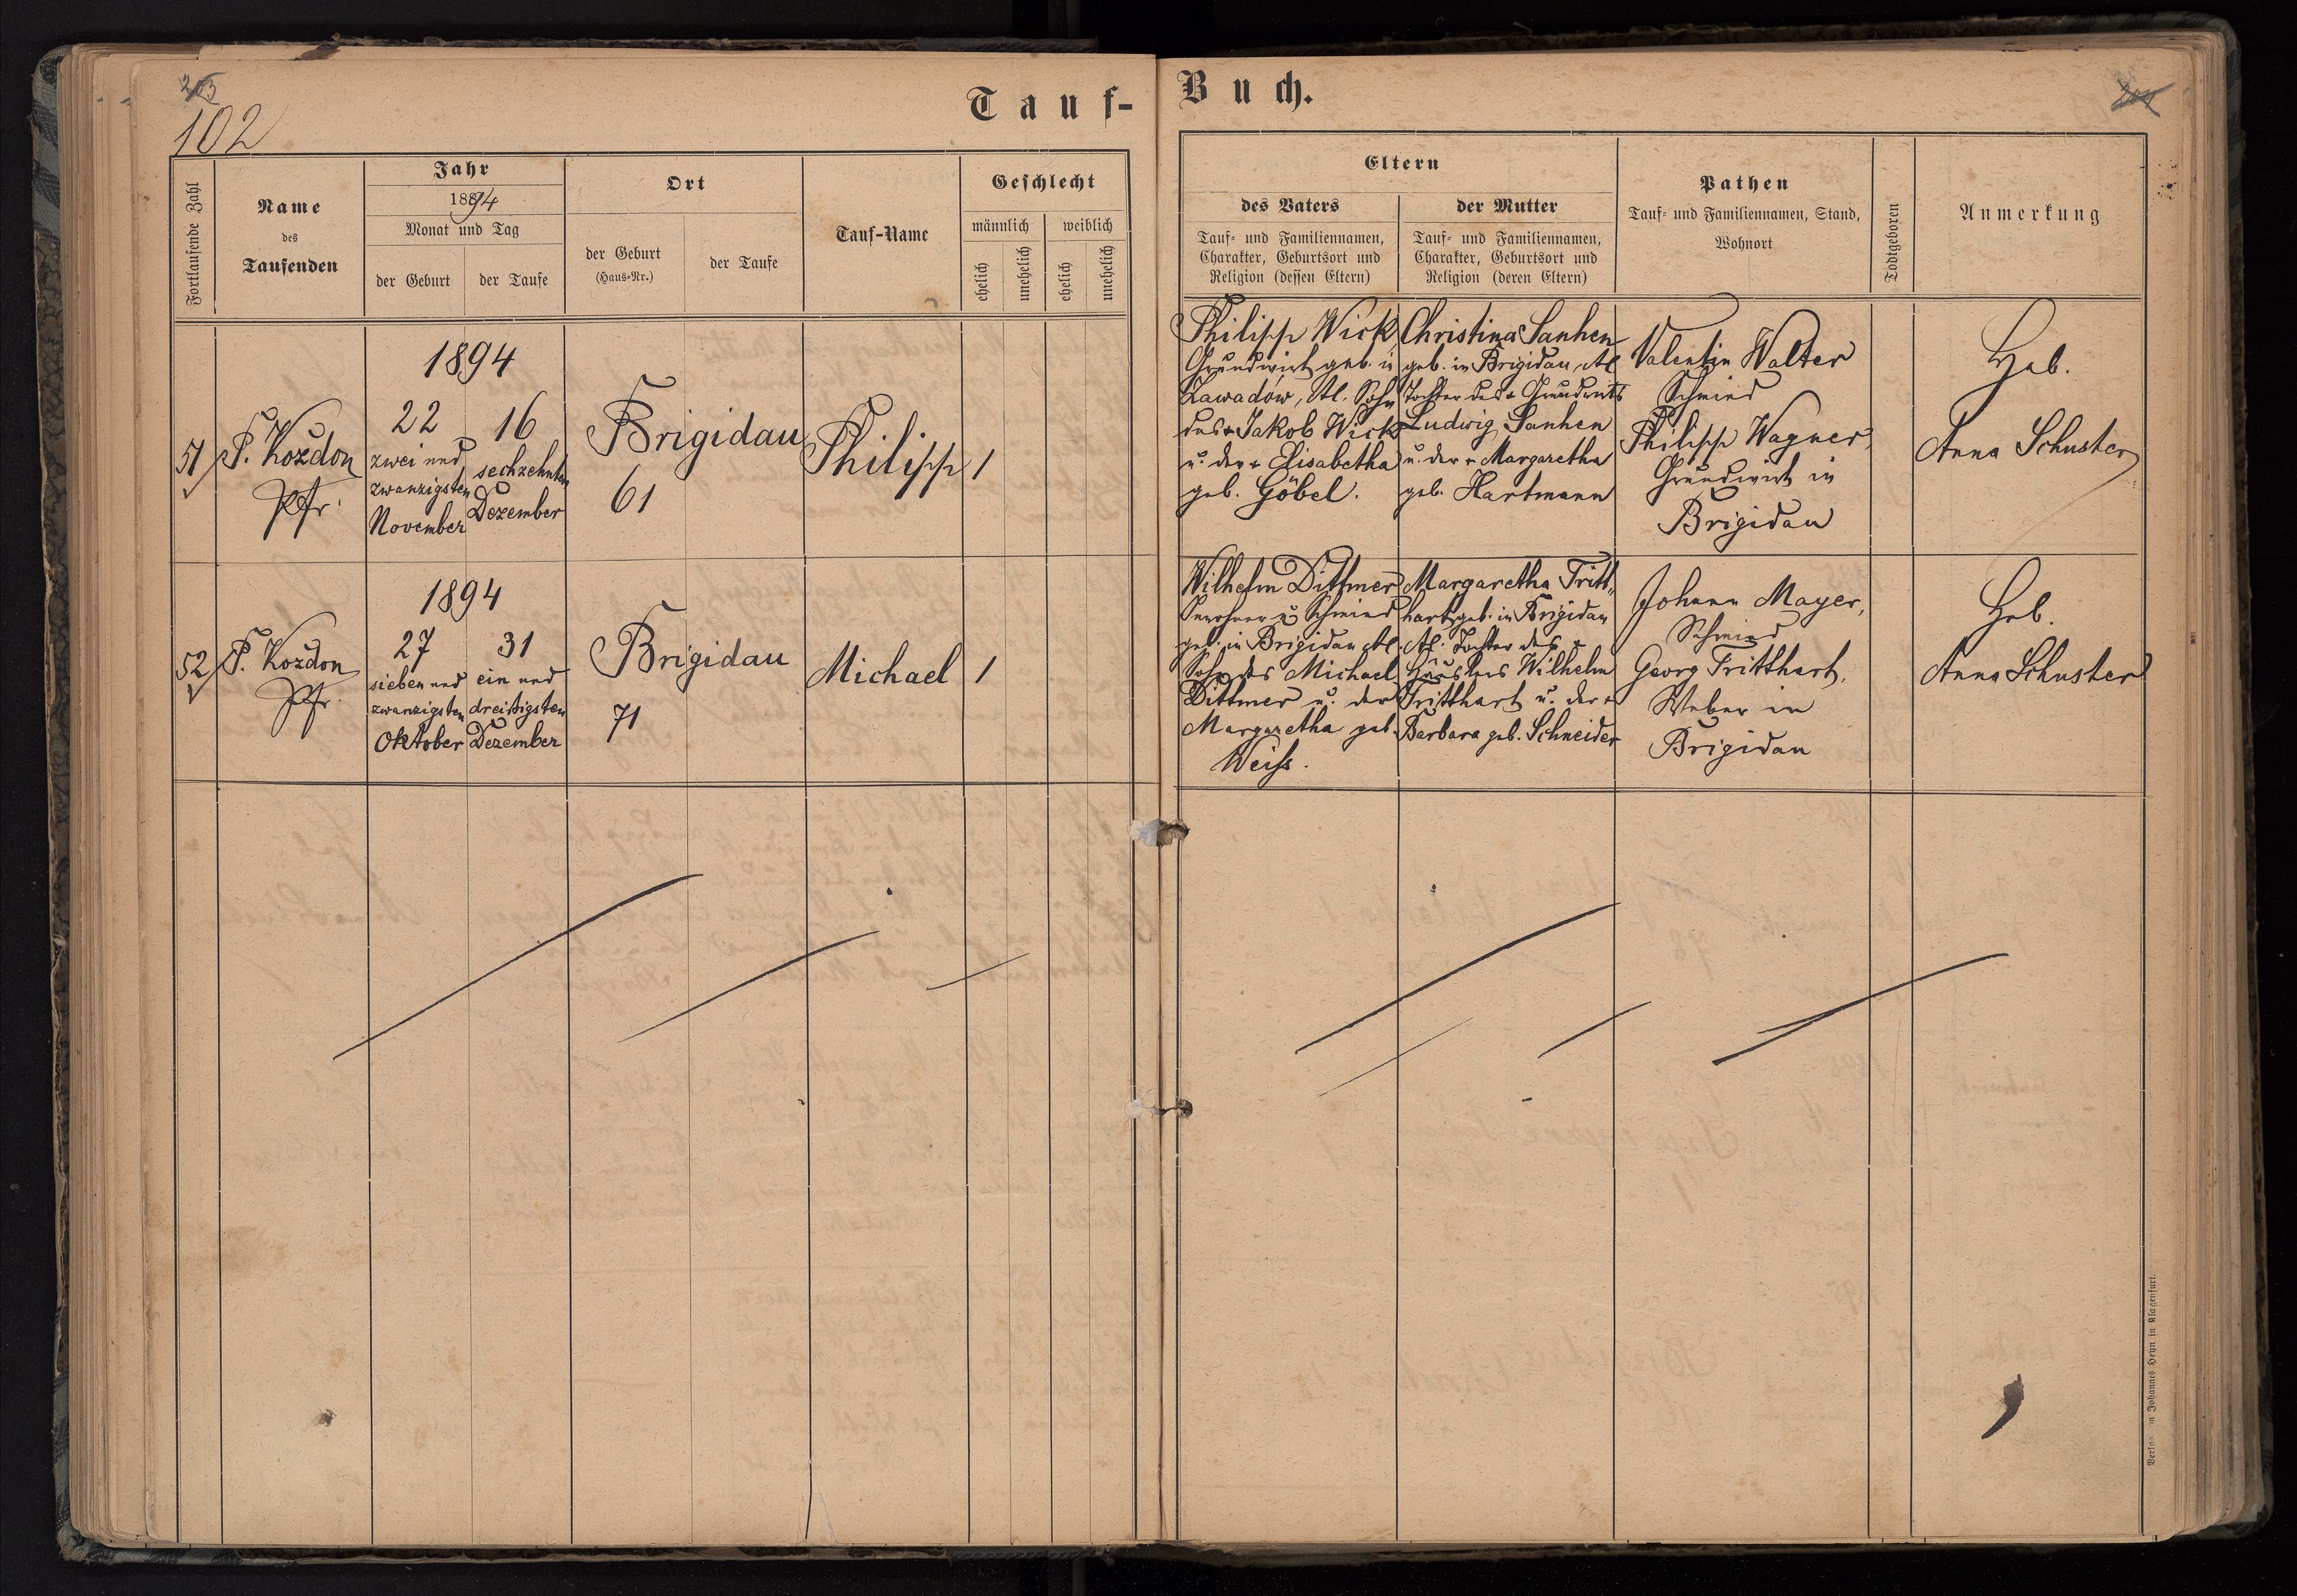 203
102
Tauf-
Fortlaufende Zahl
Name
des
Taufenden
Jahr
1894
Monat und Tag
der Geburt
der Taufe
Ort
der Geburt
(Haus-Nr.)
der Taufe
Tauf-Name
Geschlecht
männlich
weiblich
ehelich
unehelich
ehelich
unehelich
51
P. Kozdon
Pfr.
1894
22
zwei und
zwanzigsten
November
16
sechzehnten
Dezember
Brigidau
61
Philipp
1
52
P. Kozdon
Pfr.
1894
27
sieben und
zwanzigsten
Oktober
31
ein und
dreißigsten
Dezember
Brigidau
71
Michael
1
Buch.
204
Eltern
des Vaters
Tauf- und Familiennamen,
Charakter, Geburtsort und
Religion (dessen Eltern)
der Mutter
Tauf- und Familiennamen,
Charakter, Geburtsort und
Religion (deren Eltern)
Pathen
Tauf- und Familiennamen, Stand,
Wohnort
Todtgeboren
Anmerkung
Philipp Wick
Grundwirt geb. in
Zawadów, Sohn
des Jakob Wick
u. der Elisabetha
geb. Göbel.
Christina Sanhen
geb. in Brigidau
Tochter des
Ludwig Sanhen
u. der Margaretha
geb. Hartmann
Valentin Walter
Schmied
Philipp Wagner,
Grundwirt in
Brigidau
Heb.
Anna Schuster
Wilhelm Dittmer
Inwohner u. Schmied
geb. in Brigidau
Sohn des Michael
Dittmer u. der
Margaretha geb.
Weiss.
Margaretha Tritt„
hart geb. in Brigidau
Tochter des
Häuslers Wilhelm
Tritthart u. der
Barbara geb. Schneider
Johann Mayer,
Schmied
Georg Tritthart,
Weber in
Brigidau
Heb.
Anna Schuster
Johannes Heyn in Klagenfurt.